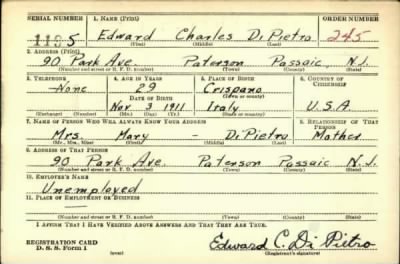 SERIAL NUMBER 1. NAME (Print) ORDER NUMBER
1195 Edward Charles Di Pietro 245
(First) (Middle) (Last)
2. ADDRESS (Print)
90 Park Ave. Paterson Passaic N.J.
(Number and street or R. F. D. number) (Town) (County) (State)
3. TELEPHONE 4. AGE IN YEARS 5. PLACE OF BIRTH 6. COUNTRY OF CITIZENSHIP
None 29 Crispano
DATE OF BIRTH (Town or county)
Nov 3 1911 Italy U.S.A
(Exchange) (Number) (Mo.) (Day) (Yr.) (State or country)
7. NAME OF PERSON WHO WILL ALWAYS KNOW YOUR ADDRESS 8. RELATIONSHIP OF THAT PERSON
Mrs. Mary - Di Pietro Mother
(Mr., Mrs., Miss) (First) (Middle) (Last)
9. ADDRESS OF THAT PERSON
90 Park Ave. Paterson Passaic N.J.
(Number and street or R. F. D. number) (Town) (County) (State)
10. EMPLOYER'S NAME
Unemployed
11. PLACE OF EMPLOYMENT OR BUSINESS
(Number and street or R. F. D. number) (Town) (County) (State)
I AFFIRM THAT I HAVE VERIFIED ABOVE ANSWERS AND THAT THEY ARE TRUE.
REGISTRATION CARD
D. S. S. Form 1 (over) Edward C. Di Pietro
(Registrant's signature)